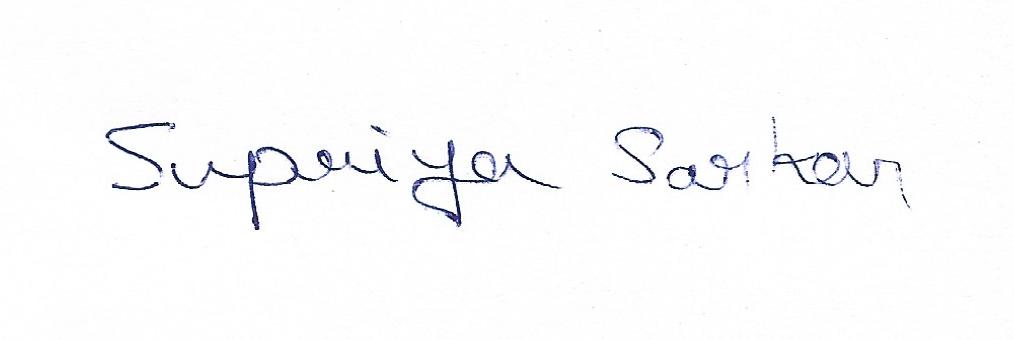 Supriya Sarkar